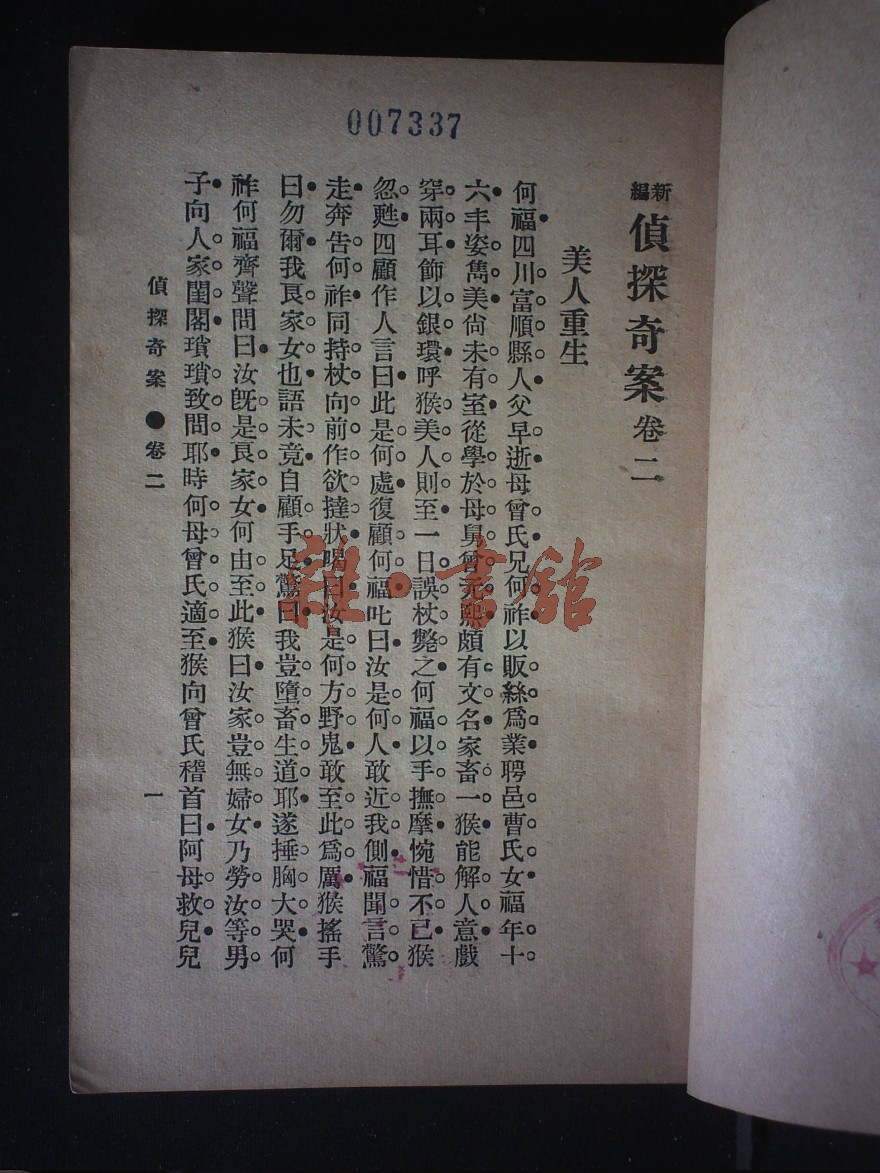 007337
新編 偵探奇案 卷二
美人重生
何福四川富順縣人父早逝母曾氏兄何祚以販絲爲業聘邑曹氏女福年十
六丰姿雋美尙未有室從學於母舅曾元熙頗有文名家畜一猴能解人意戲
穿兩耳飾以銀環呼猴美人則至一日誤杖斃之何福以手撫摩惋惜不已猴
忽甦四顧作人言曰此是何處復顧何福叱曰汝是何人敢近我側福聞言驚
走奔告何祚同持杖向前作欲撻狀喝曰汝是何方野鬼敢至此爲厲猴搖手
曰勿爾我良家女也語未竟自顧手足驚曰我豈墮畜生道耶遂捶胸大哭何
祚何福齊聲問曰汝旣是良家女何由至此猴曰汝家豈無婦女乃勞汝等男
子向人家閨閣瑣瑣致問耶時何母曾氏適至猴向曾氏稽首曰阿母救兒兒
偵探奇案●卷二
一
雜·書館